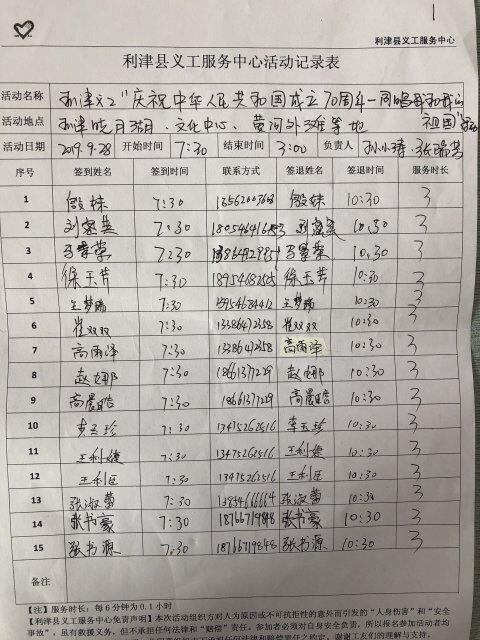 1
利津县义工服务中心
利津县义工服务中心活动记录表
活动名称 利津义工"庆祝中华人民共和国成立70周年—同唱我和我的祖国"活动
活动地点 利津 皓月湖、文化中心、黄河外滩等地
活动日期 2019.9.28 开始时间 7:30 结束时间 3:00 负责人 孙小涛、张瑞芳
序号 签到姓名 签到时间 联系方式 签退姓名 签退时间 服务时长
1 7:30 10:30 3
2 7:30 10:30 3
3 7:30 10:30 3
4 徐玉芹 7:30 18954682505 徐玉芹 10:30 3
5 7:30 15954684412 10:30 3
6 崔双双 7:30 13386472358 崔双双 10:30 3
7 高雨泽 7:30 13386472358 高雨泽 10:30 3
8 赵娜 7:30 18661377229 赵娜 10:30 3
9 高晨皓 7:30 18661377229 高晨皓 10:30 3
10 李玉珍 7:30 13475262516 李玉珍 10:30 3
11 王利婕 7:30 13475262516 王利婕 10:30 3
12 王利臣 7:30 13475262516 王利臣 10:30 3
13 张淑蕾 7:30 13854666664 张淑蕾 10:30 3
14 张书豪 7:30 18766719848 张书豪 10:30 3
15 张书源 7:30 18766719848 张书源 10:30 3
备注
【注】服务时长：每6分钟为0.1小时
【利津县义工服务中心免责声明】本次活动组织方对人为原因或不可抗拒性的意外而引发的"人身伤害"和"安全
事故"，虽有救援义务，但不承担任何法律和"赔偿"责任。参加者必须对自身安全负责，所以报名参加活动者均